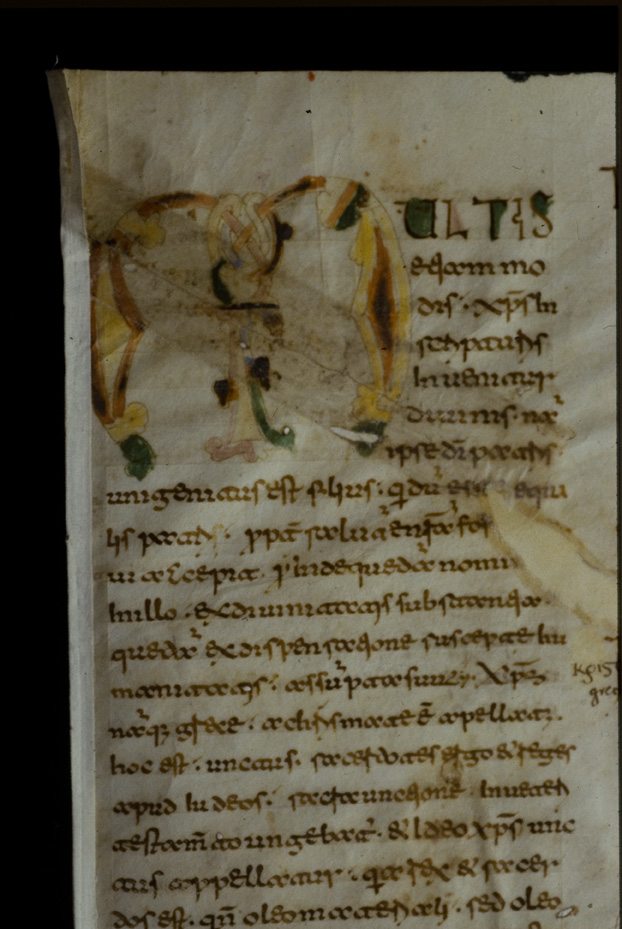 MULTIS
etiam mo
dis · xp̄s in
scripturis
inuenitur
diuinis · nā
ipse dī patris
unigenitus est filius · qui dū equa
lis patri · ꝓpt̄ salutē nr̄ā for
accepit · p̱inde quedā nomi
in illo · ex diuinitatis substantia ·
quedā ex dispensatione susceptę hu
manitatis · assūpta sunt · Xp̄s
nāq; grece · a chrismate ē appellat; ·
hoc est · unctus · sacerdotes ergo & reges
apud iudeos · sacra unctione · in ueteri
testam̄to ungebāt · & ideo xp̄s unc
tus appellatur · quia rex & sacer
dos est · qui non oleo materiali · sed oleo